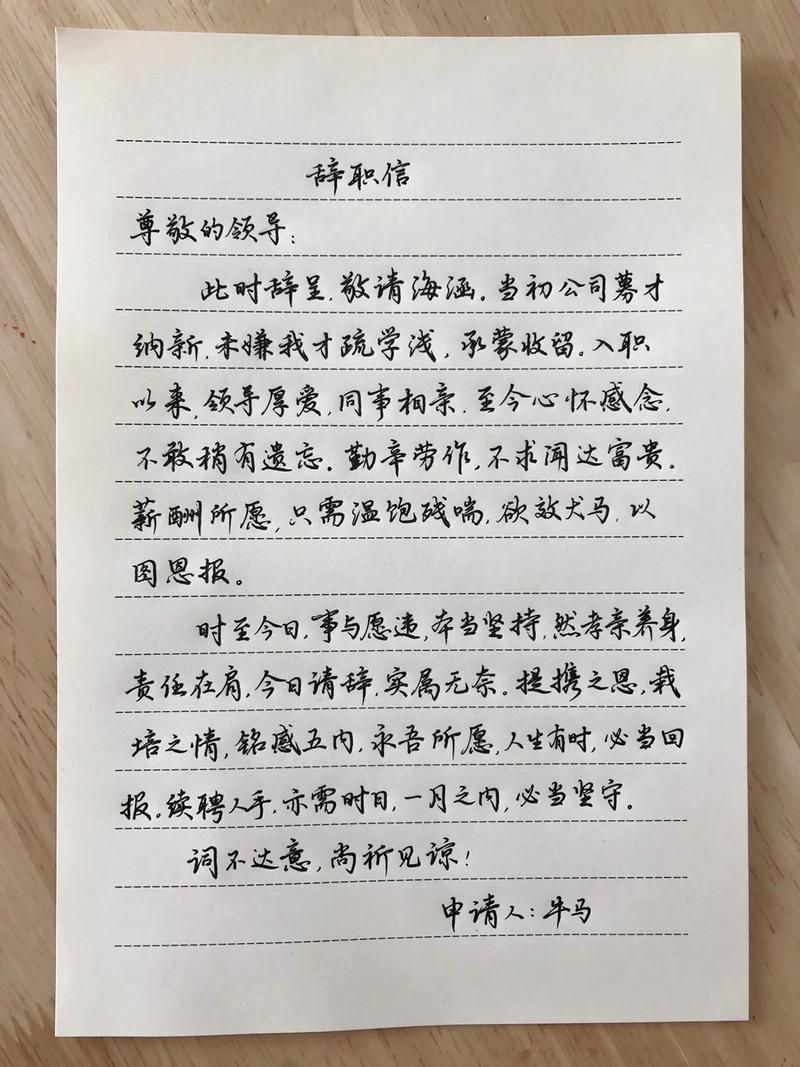 辞职信
尊敬的领导：
此时辞呈，敬请海涵。当初公司募才
纳新，未嫌我才疏学浅，承蒙收留。入职
以来，领导厚爱，同事相亲，至今心怀感念，
不敢稍有遗忘。勤辛劳作，不求闻达富贵。
薪酬所愿，只需温饱残喘，欲效犬马，以
图恩报。
时至今日，事与愿违，本当坚持，然孝亲养身，
责任在肩，今日请辞，实属无奈。提携之恩，栽
培之情，铭感五内，永吾所愿，人生有时，必当回
报。续聘人手，亦需时日，一月之内，必当坚守。
词不达意，尚祈见谅！
申请人：牛马